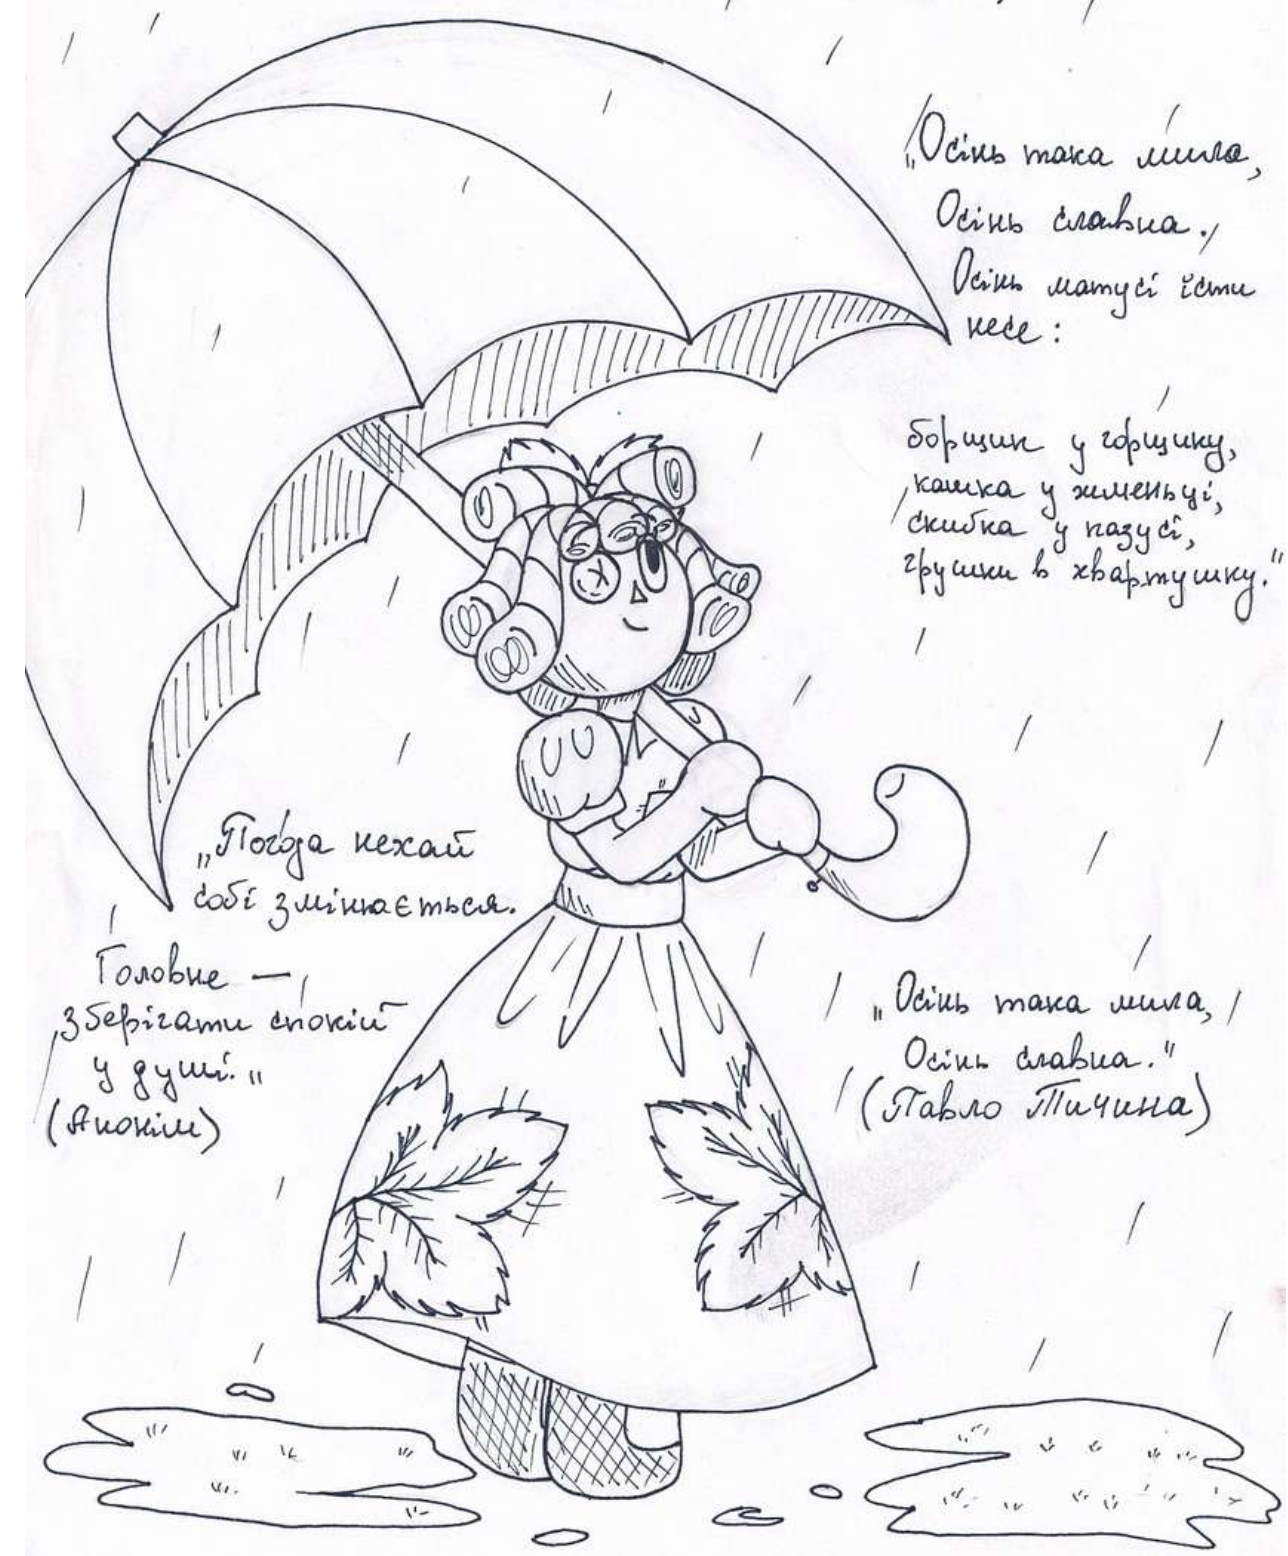 „Осінь така мила,
Осінь славна.
Осінь матусі їсти
несе:
борщик у горщику,
кашка у жменьці,
скибка у пазусі,
грушки в хвартушку."
„Погода нехай
собі змінюється.
Головне —
зберігати спокій
у душі.„
(Анонім)
„Осінь така мила,
Осінь славна."
(Павло Тичина)